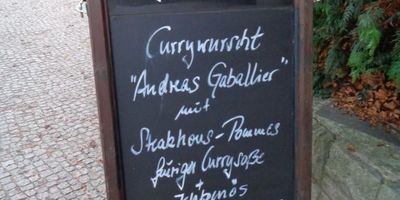 Currywurscht
"Andreas Gaballier"
mit
Steakhous-Pommes
feuriger Currysoße
+